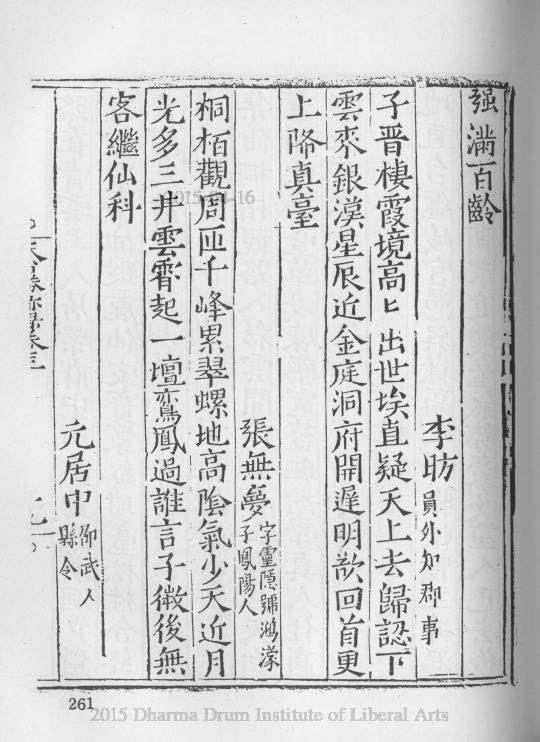 强滿百齡
李昉員外知郡事
子晉棲霞境高匕出世埃直疑天上去歸認下
雲來銀漢星辰近金庭洞府開遲明欲回首更
上降真臺
張無夢字靈隱號鴻濛子鳳陽人
桐栢觀周匝千峰累翠螺地高陰氣少天近月
光多三井雲霄起一壇鸞鳳過誰言子微後無
客繼仙科
元居中邵武人縣令
261
2015 Dharma Drum Institute of Liberal Arts